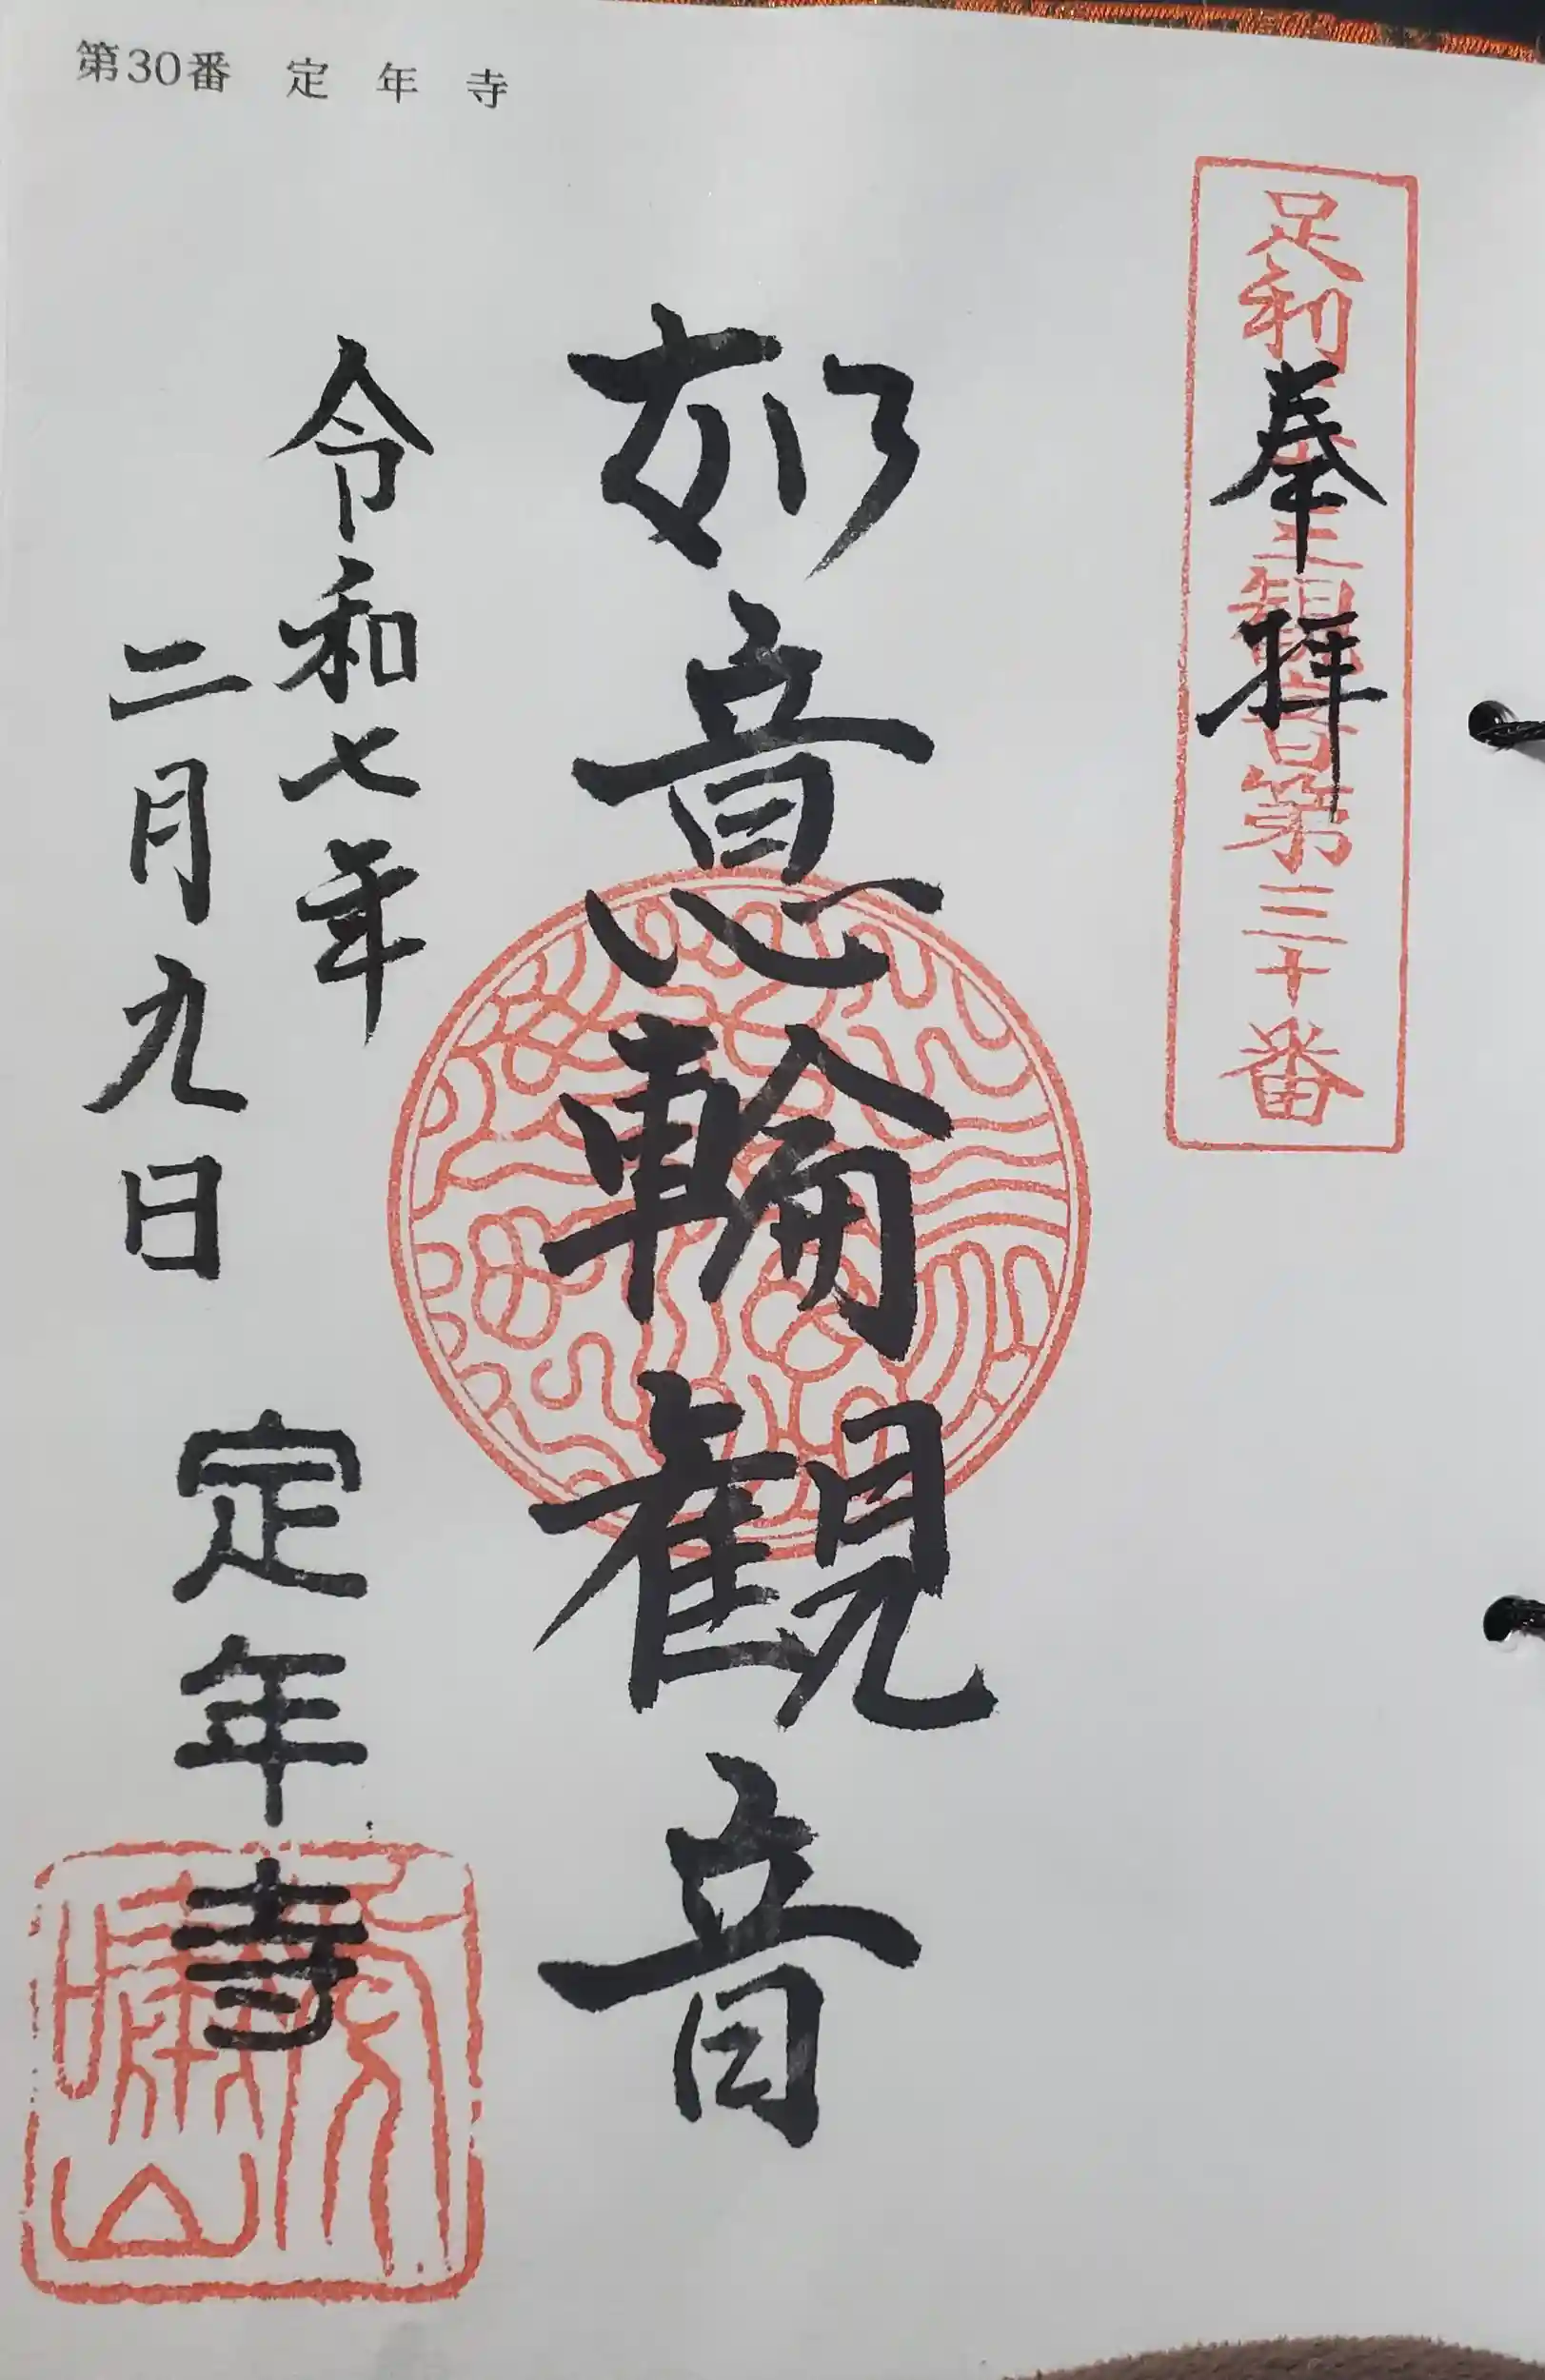 第30番 定年寺
足利三十三観音第三十番
奉拝
如意輪観音
令和七年
二月九日
定年寺